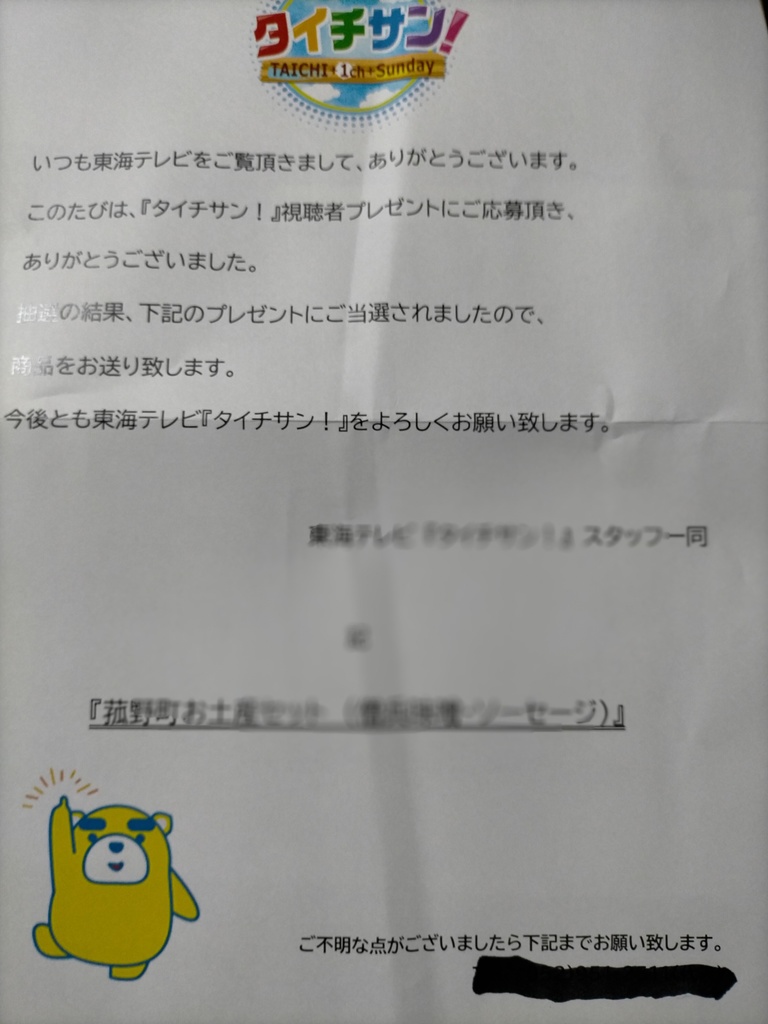 タイチサン!
TAICHI+1ch+Sunday
いつも東海テレビをご覧頂きまして、ありがとうございます。
このたびは、『タイチサン!』視聴者プレゼントにご応募頂き、
ありがとうございました。
抽選の結果、下記のプレゼントにご当選されましたので、
商品をお送り致します。
今後とも東海テレビ『タイチサン!』をよろしくお願い致します。
東海テレビ『タイチサン!』スタッフ一同
記
『菰野町お土産セット ソーセージ)』
ご不明な点がございましたら下記までお願い致します。